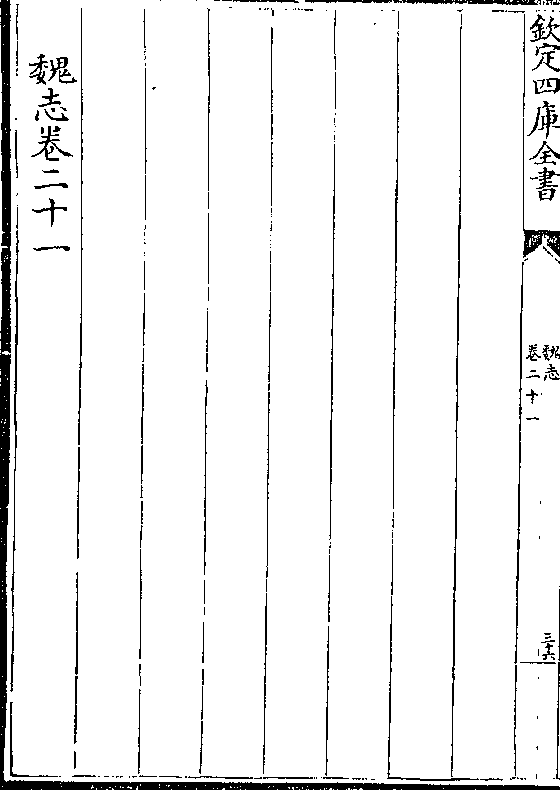 欽定四庫全書
魏志
卷二十一
三十六
魏志卷二十一